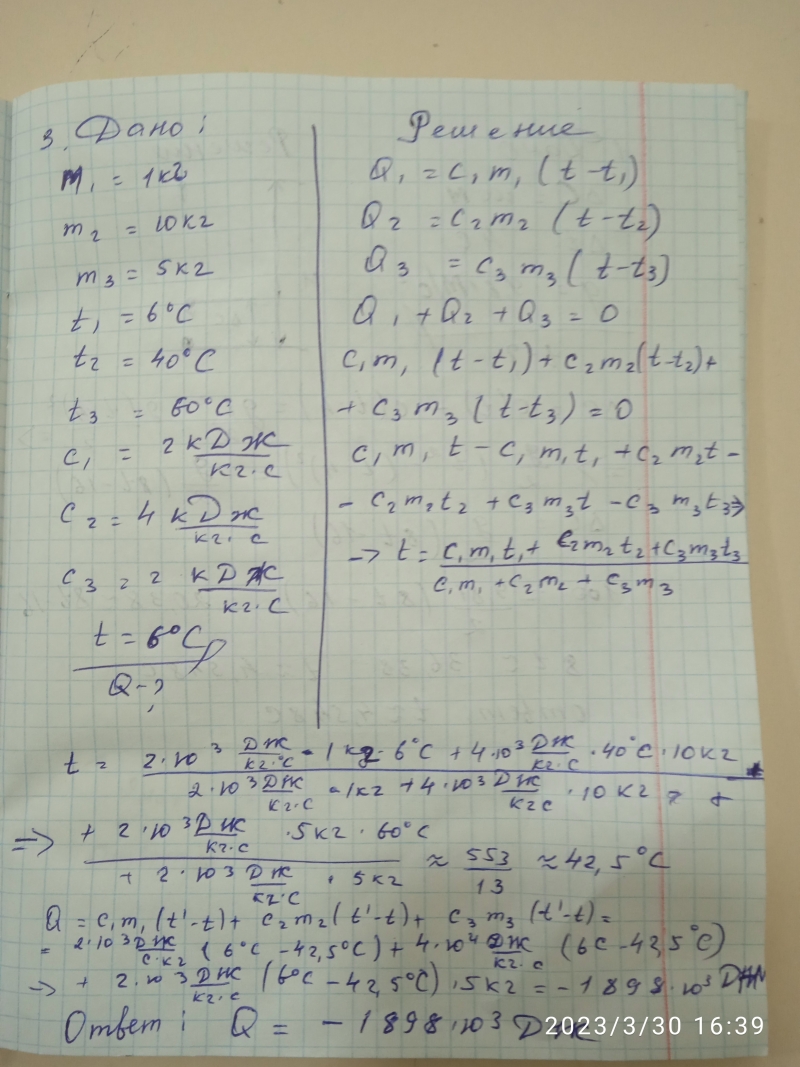 3. Дано:
m₁ = 1кг
m₂ = 10кг
m₃ = 5кг
t₁ = 6°C
t₂ = 40°C
t₃ = 60°C
c₁ = 2 кДж/кг·с
c₂ = 4 кДж/кг·с
c₃ = 2 кДж/кг·с
t = 6°C
Q-?
Решение
Q₁ = c₁m₁(t-t₁)
Q₂ = c₂m₂(t-t₂)
Q₃ = c₃m₃(t-t₃)
Q₁ + Q₂ + Q₃ = 0
c₁m₁(t-t₁) + c₂m₂(t-t₂) +
+ c₃m₃(t-t₃) = 0
c₁m₁t - c₁m₁t₁ + c₂m₂t -
- c₂m₂t₂ + c₃m₃t - c₃m₃t₃ ⇒
→ t = (c₁m₁t₁ + c₂m₂t₂ + c₃m₃t₃)/(c₁m₁ + c₂m₂ + c₃m₃)
t = 2·10³ Дж/кг·°С · 1кг · 6°C + 4·10³ Дж/кг·с · 40°C · 10кг
2·10³ Дж/кг·с · 1кг + 4·10³ Дж/кг·с · 10кг +
⇒ + 2·10³ Дж/кг·с · 5кг · 60°C
+ 2·10³ Дж/кг·с · 5кг ≈ 553/13 ≈ 42,5°C
Q = c₁m₁(t'-t) + c₂m₂(t'-t) + c₃m₃(t'-t) =
= 2·10³ Дж/с·кг (6°C - 42,5°C) + 4·10⁴ Дж/кг·с (6C - 42,5°C)
→ + 2·10³ Дж/кг·с (6°C - 42,5°C)·5кг = -1898·10³ Дж
Ответ: Q = -1898·10³ Дж
2023/3/30 16:39